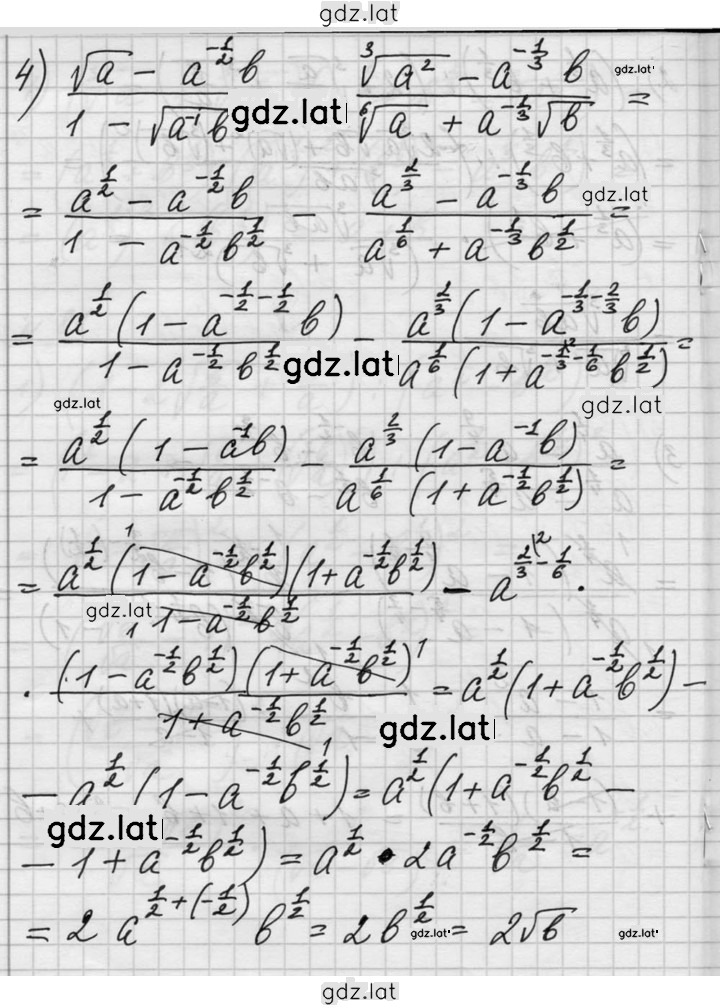 gdz.lat
4) (√a − a^(-1/2) b)/(1 − √(a^(-1) b)) gdz.lat (∛(a²) − a^(-1/3) b)/(⁶√a + a^(-1/3) √b) = gdz.lat
= (a^(1/2) − a^(-1/2) b)/(1 − a^(-1/2) b^(1/2)) − (a^(2/3) − a^(-1/3) b)/(a^(1/6) + a^(-1/3) b^(1/2)) = gdz.lat
= (a^(1/2) (1 − a^(-1/2-1/2) b))/(1 − a^(-1/2) b^(1/2)) − (a^(2/3) (1 − a^(-1/3-2/3) b))/(a^(1/6) (1 + a^(-1/3\2-1/6) b^(1/2))) = gdz.lat
gdz.lat gdz.lat
= (a^(1/2) (1 − a^(-1) b))/(1 − a^(-1/2) b^(1/2)) − (a^(2/3) (1 − a^(-1) b))/(a^(1/6) (1 + a^(-1/2) b^(1/2))) =
= (a^(1/2) (1 − a^(-1/2) b^(1/2))¹ (1 + a^(-1/2) b^(1/2)))/(1 − a^(-1/2) b^(1/2))₁ − a^(2/3\2-1/6) · gdz.lat
· ((1 − a^(-1/2) b^(1/2)) (1 + a^(-1/2) b^(1/2))¹)/(1 + a^(-1/2) b^(1/2))₁ = a^(1/2) (1 + a^(-1/2) b^(1/2)) − gdz.lat
− a^(1/2) (1 − a^(-1/2) b^(1/2)) = a^(1/2) (1 + a^(-1/2) b^(1/2) −
gdz.lat
− 1 + a^(-1/2) b^(1/2)) = a^(1/2) · 2a^(-1/2) b^(1/2) =
= 2 a^(1/2+(-1/2)) b^(1/2) = 2b^(1/2) gdz.lat = 2√b gdz.lat
gdz.lat